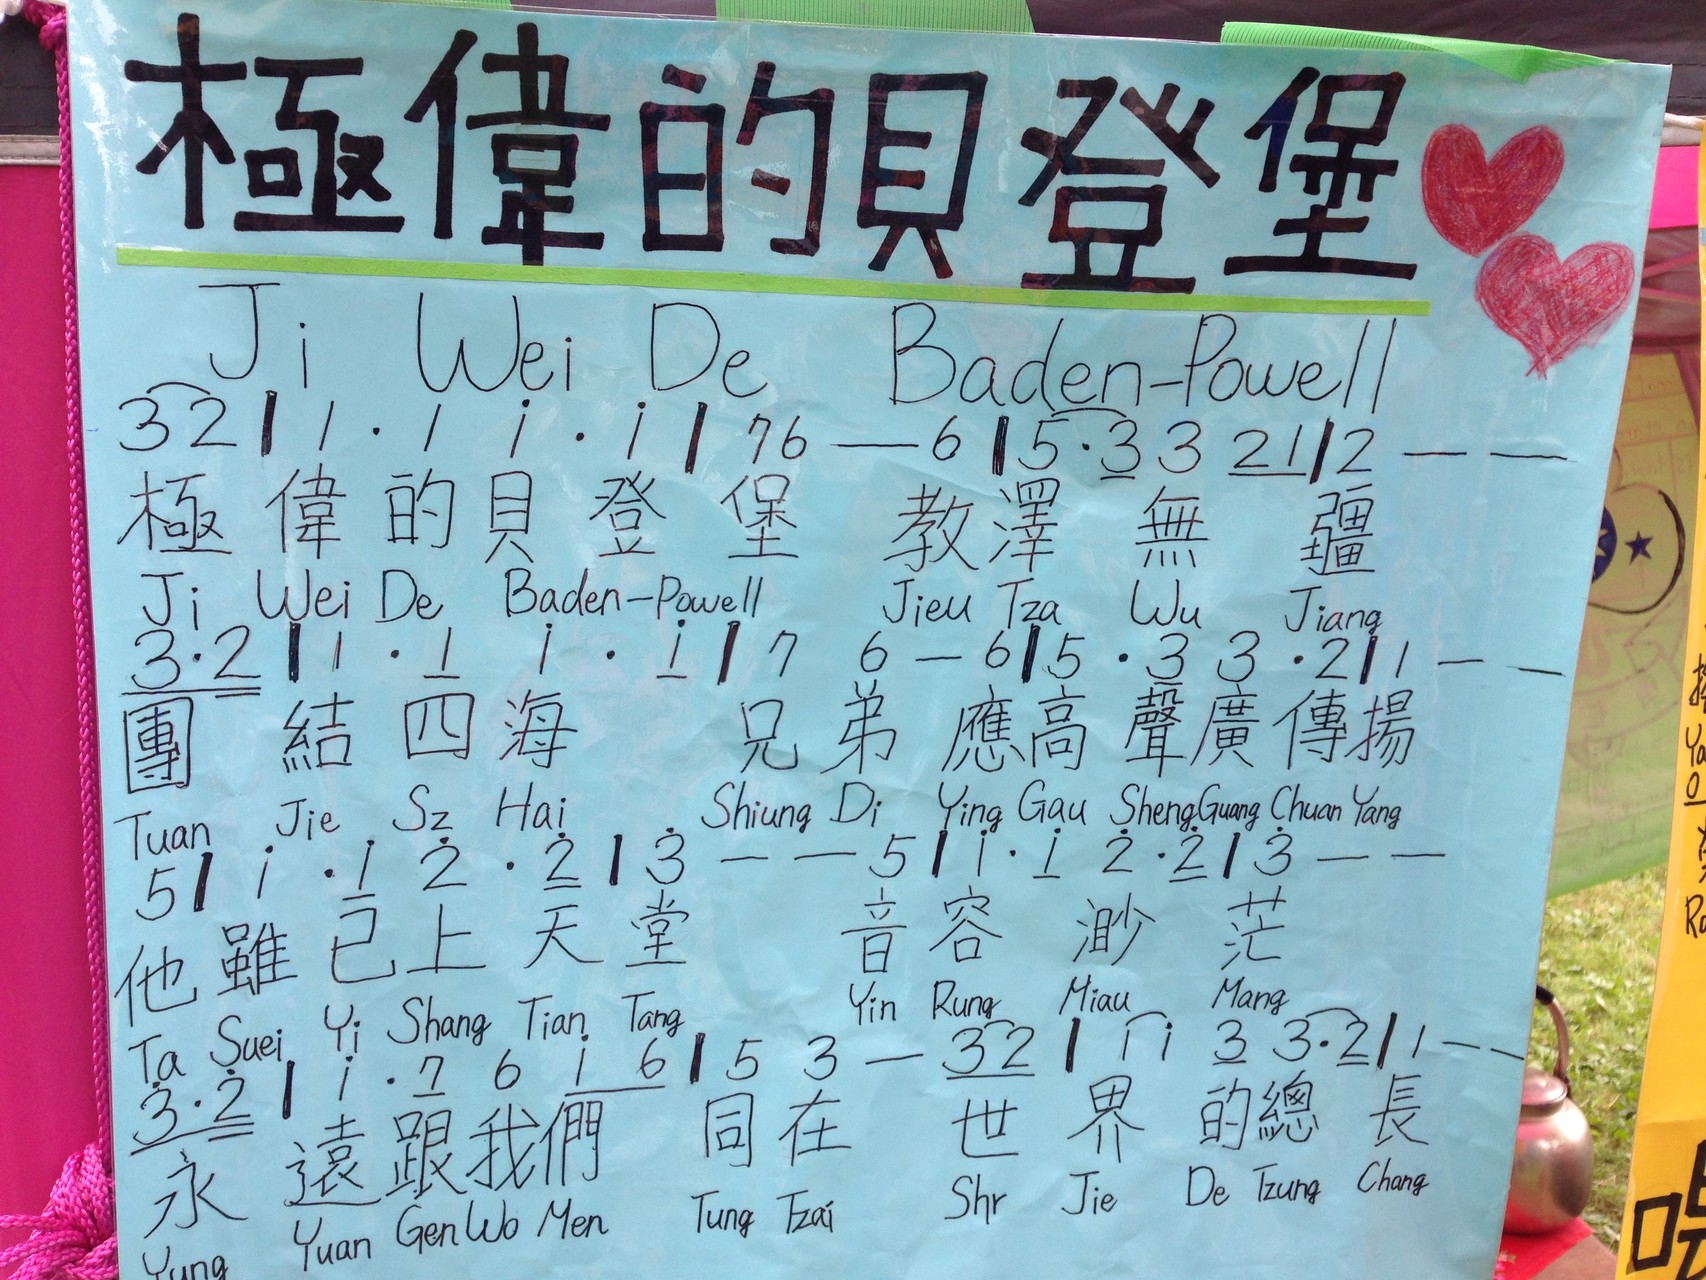 極偉的貝登堡
Ji Wei De Baden-Powell
3 2 | 1 · 1 i · i | 7 6 — 6 | 5 · 3 3 2 1 | 2 — —
極偉的貝登堡 教澤無疆
Ji Wei De Baden-Powell Jieu Tza Wu Jiang
3 · 2 | 1 · 1 i · i | 7 6 — 6 | 5 · 3 3 · 2 | 1 — —
團結四海 兄弟應高聲廣傳揚
Tuan Jie Sz Hai Shiung Di Ying Gau Sheng Guang Chuan Yang
5 | i · i 2̇ · 2̇ | 3̇ — — 5 | i · i 2̇ · 2̇ | 3̇ — —
他雖已上天堂 音容渺茫
Ta Suei Yi Shang Tian Tang Yin Rung Miau Mang
3̇ · 2̇ | i · 7 6 i 6 | 5 3 — 3 2 | 1 i 3 3 · 2 | 1 — —
永遠跟我們同在 世界的總長
Yung Yuan Gen Wo Men Tung Tzai Shr Jie De Tzung Chang